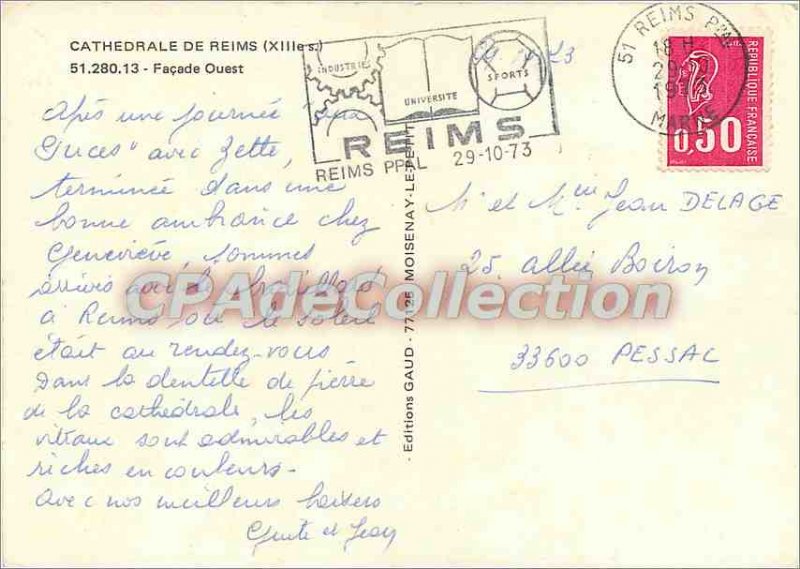 CATHEDRALE DE REIMS (XIIIe s.)
51.280.13 - Façade Ouest
Après une journée "aux
Puces" avec Zette,
terminée dans une
bonne ambiance chez
Geneviève, sommes
arrivés avec le brouillard
à Reims où le soleil
était au rendez-vous
Dans la dentelle de pierre
de la cathédrale, les
vitraux sont admirables et
riches en couleurs -
Avec nos meilleurs baisers
et Jean
INDUSTRIES
UNIVERSITE
SPORTS
REIMS
REIMS PPAL 29-10-73
51 REIMS PPAL
18 H
MARNE
REPUBLIQUE FRANÇAISE
0,50
- Editions GAUD - 77125 MOISENAY-LE-PETIT
Mr et Mme Jean DELAGE
25, allée Boiron
33600 PESSAC
CPAdeCollection